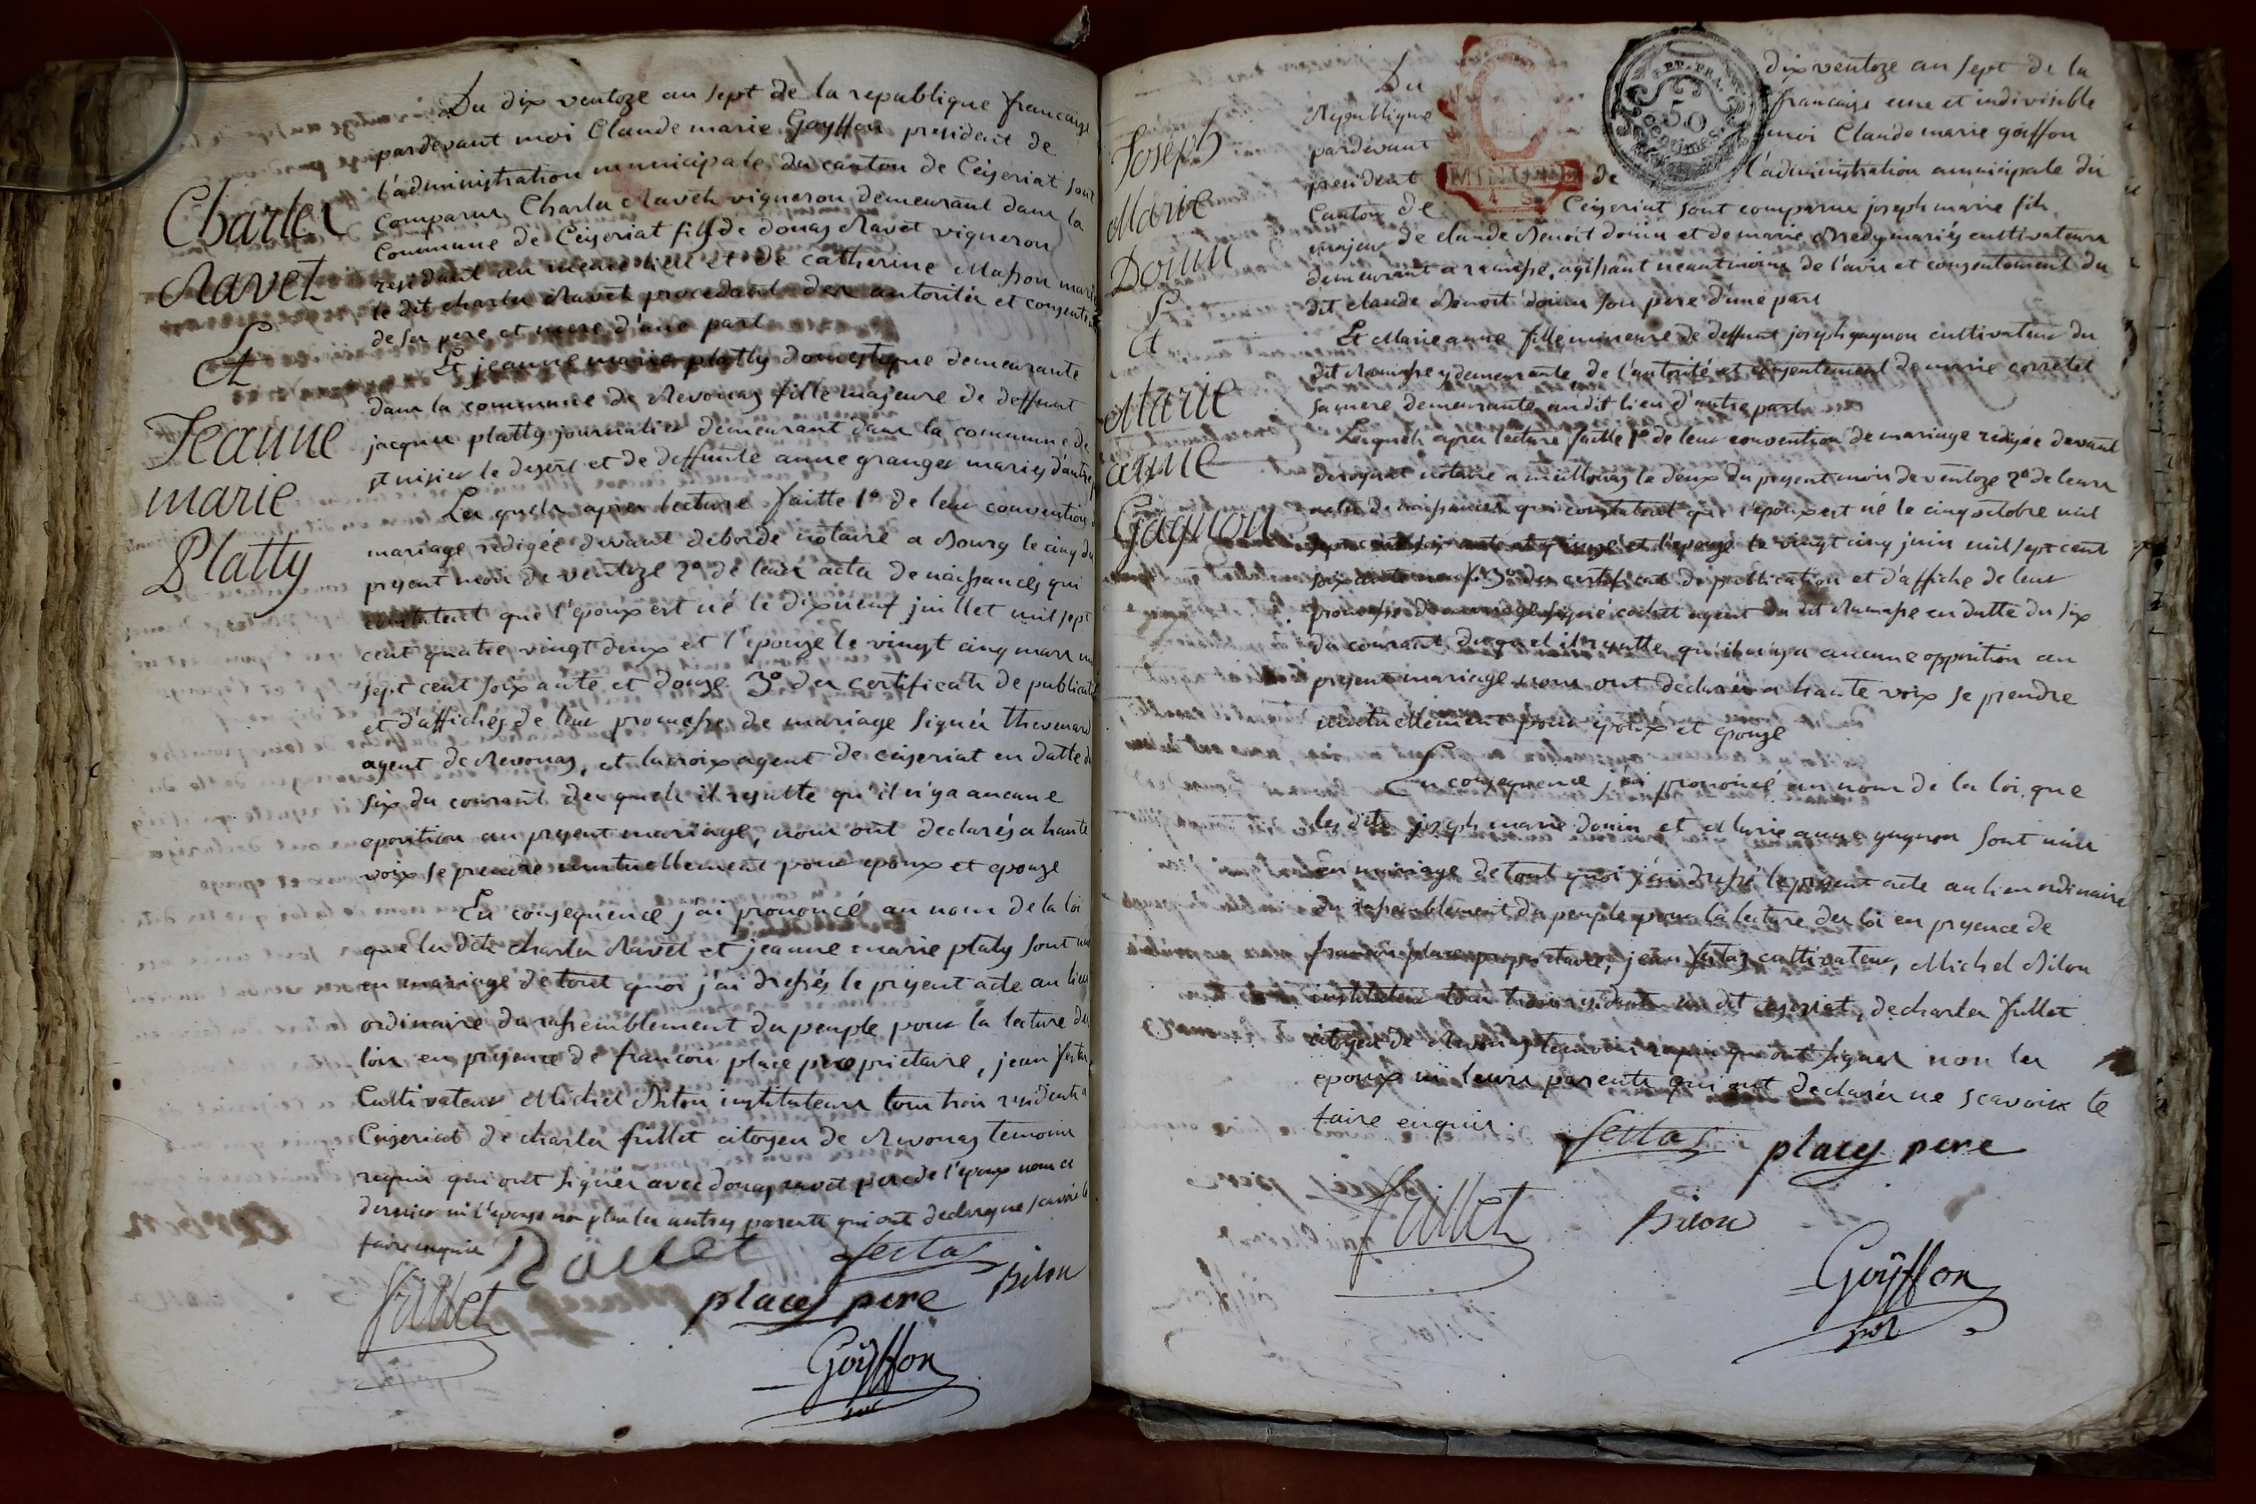 Du dix ventoze an sept de la republique francaise
pardevant moi Claude marie Goyffon president de
l'administration municipale du canton de Ceyseriat sont
Comparus Charles Ravet vigneron demeurant dans la
Commune de Ceyseriat fils de donas Ravet vigneron
residant au meme lieu et de catherine Masson mariés
le dit charles Ravet procedant des autorités et consentement
de ses pere et mere d'une part
Et jeanne marie platty domestique demeurante
dans la commune de Revonas fille majeure de deffunt
jacques platty journalier demeurant dans la commune de
st nisier le desert et de deffunte anne granger mariés d'autre
Les quels apres lecture faitte 1º de leur convention
mariage redigée devant deborde notaire a Bourg le cinq du
present mois de ventoze 2º de leurs actes de naissances qui
constatent que l'epoux est né le dix neuf juillet mil sept
cent quatre vingt deux et l'epouze le vingt cinq mars mil
sept cent soixante et douze 3º des certificats de publication
et d'affiches de leur promesse de mariage signés thevenard
agent de Revonas, et lacroix agent de ceyseriat en datte du
six du courant des quels il resulte qu'il n'y a aucune
oposition au present mariage, nous ont declarés a haute
voix se prendre mutuellement pour epoux et epouze
En consequence j'ai prononcé au nom de la loi
que les dits charles Ravet et jeanne marie platy sont unis
en mariage de tout quoi j'ai dressés le present acte au lieu
ordinaire du rassemblement du peuple pour la lecture des
loix en presence de francois place proprietaire, jean festas
Cultivateur Michel Bilon instituteur tous trois residents a
Ceyseriat de charles fullet citoyen de Revonas temoins
requis qui ont signés avec donas ravet pere de l'epoux non ce
dernier ni l'epouze non plus les autres parents qui ont declarés ne scavoir le
faire enquis
Charles
Ravet
Et
Jeanne
marie
Platty
Ravet festas
fullet places pere Bilon
Goyffon
Du dix ventoze an sept de la
Republique francaise une et indivisible
pardevant moi Claude marie goiffon
president de l'administration municipale du
Canton de Ceyseriat sont comparus joseph marie fils
majeur de claude Benoit donin et de marie mariés cultivateurs
demeurant a ramasse, agissant neantmoins de l'avis et consentement du
dit claude Benoit donin son pere d'une part
Et Marie anne fille mineure de deffunt joseph gagnon cultivateur du
dit Ramasse y demeurante de l'autorité et consentement de marie corretet
sa mere demeurante au dit lieu d'autre part
Lesquels apres lecture faitte 1º de leur convention de mariage redigée devant
notaire a meillonas le deux du present mois de ventoze 2º de leurs
actes de naissances qui constatent que l'epoux est né le cinq octobre mil
sept cent soixante et l'epouze le vingt cinq juin mil sept cent
soixante neuf 3º des certificat de publication et d'affiche de leur
promesse de mariage signé agent du dit Ramasse en datte du six
du courant duquel il resulte qu'il n'y a aucune opposition au
present mariage nous ont declarés a haute voix se prendre
mutuellement pour epoux et epouze
En consequence j'ai prononcé au nom de la loi que
les dits joseph marie donin et Marie anne gagnon sont unis
en mariage de tout quoi j'ai dressé le present acte au lieu ordinaire
du rassemblement du peuple pour la lecture des loi en presence de
francois place proprietaire, jean festas cultivateur, Michel Bilon
instituteur tous trois residents au dit ceyseriat, de charles fullet
citoyen de Revonas temoins requis qui ont signés non les
epoux ni leurs parents qui ont declarés ne scavoir le
faire enquis.
Joseph
Marie
Donin
Et
Marie
anne
Gagnon
festas places pere
fullet Bilon
Goyffon
50